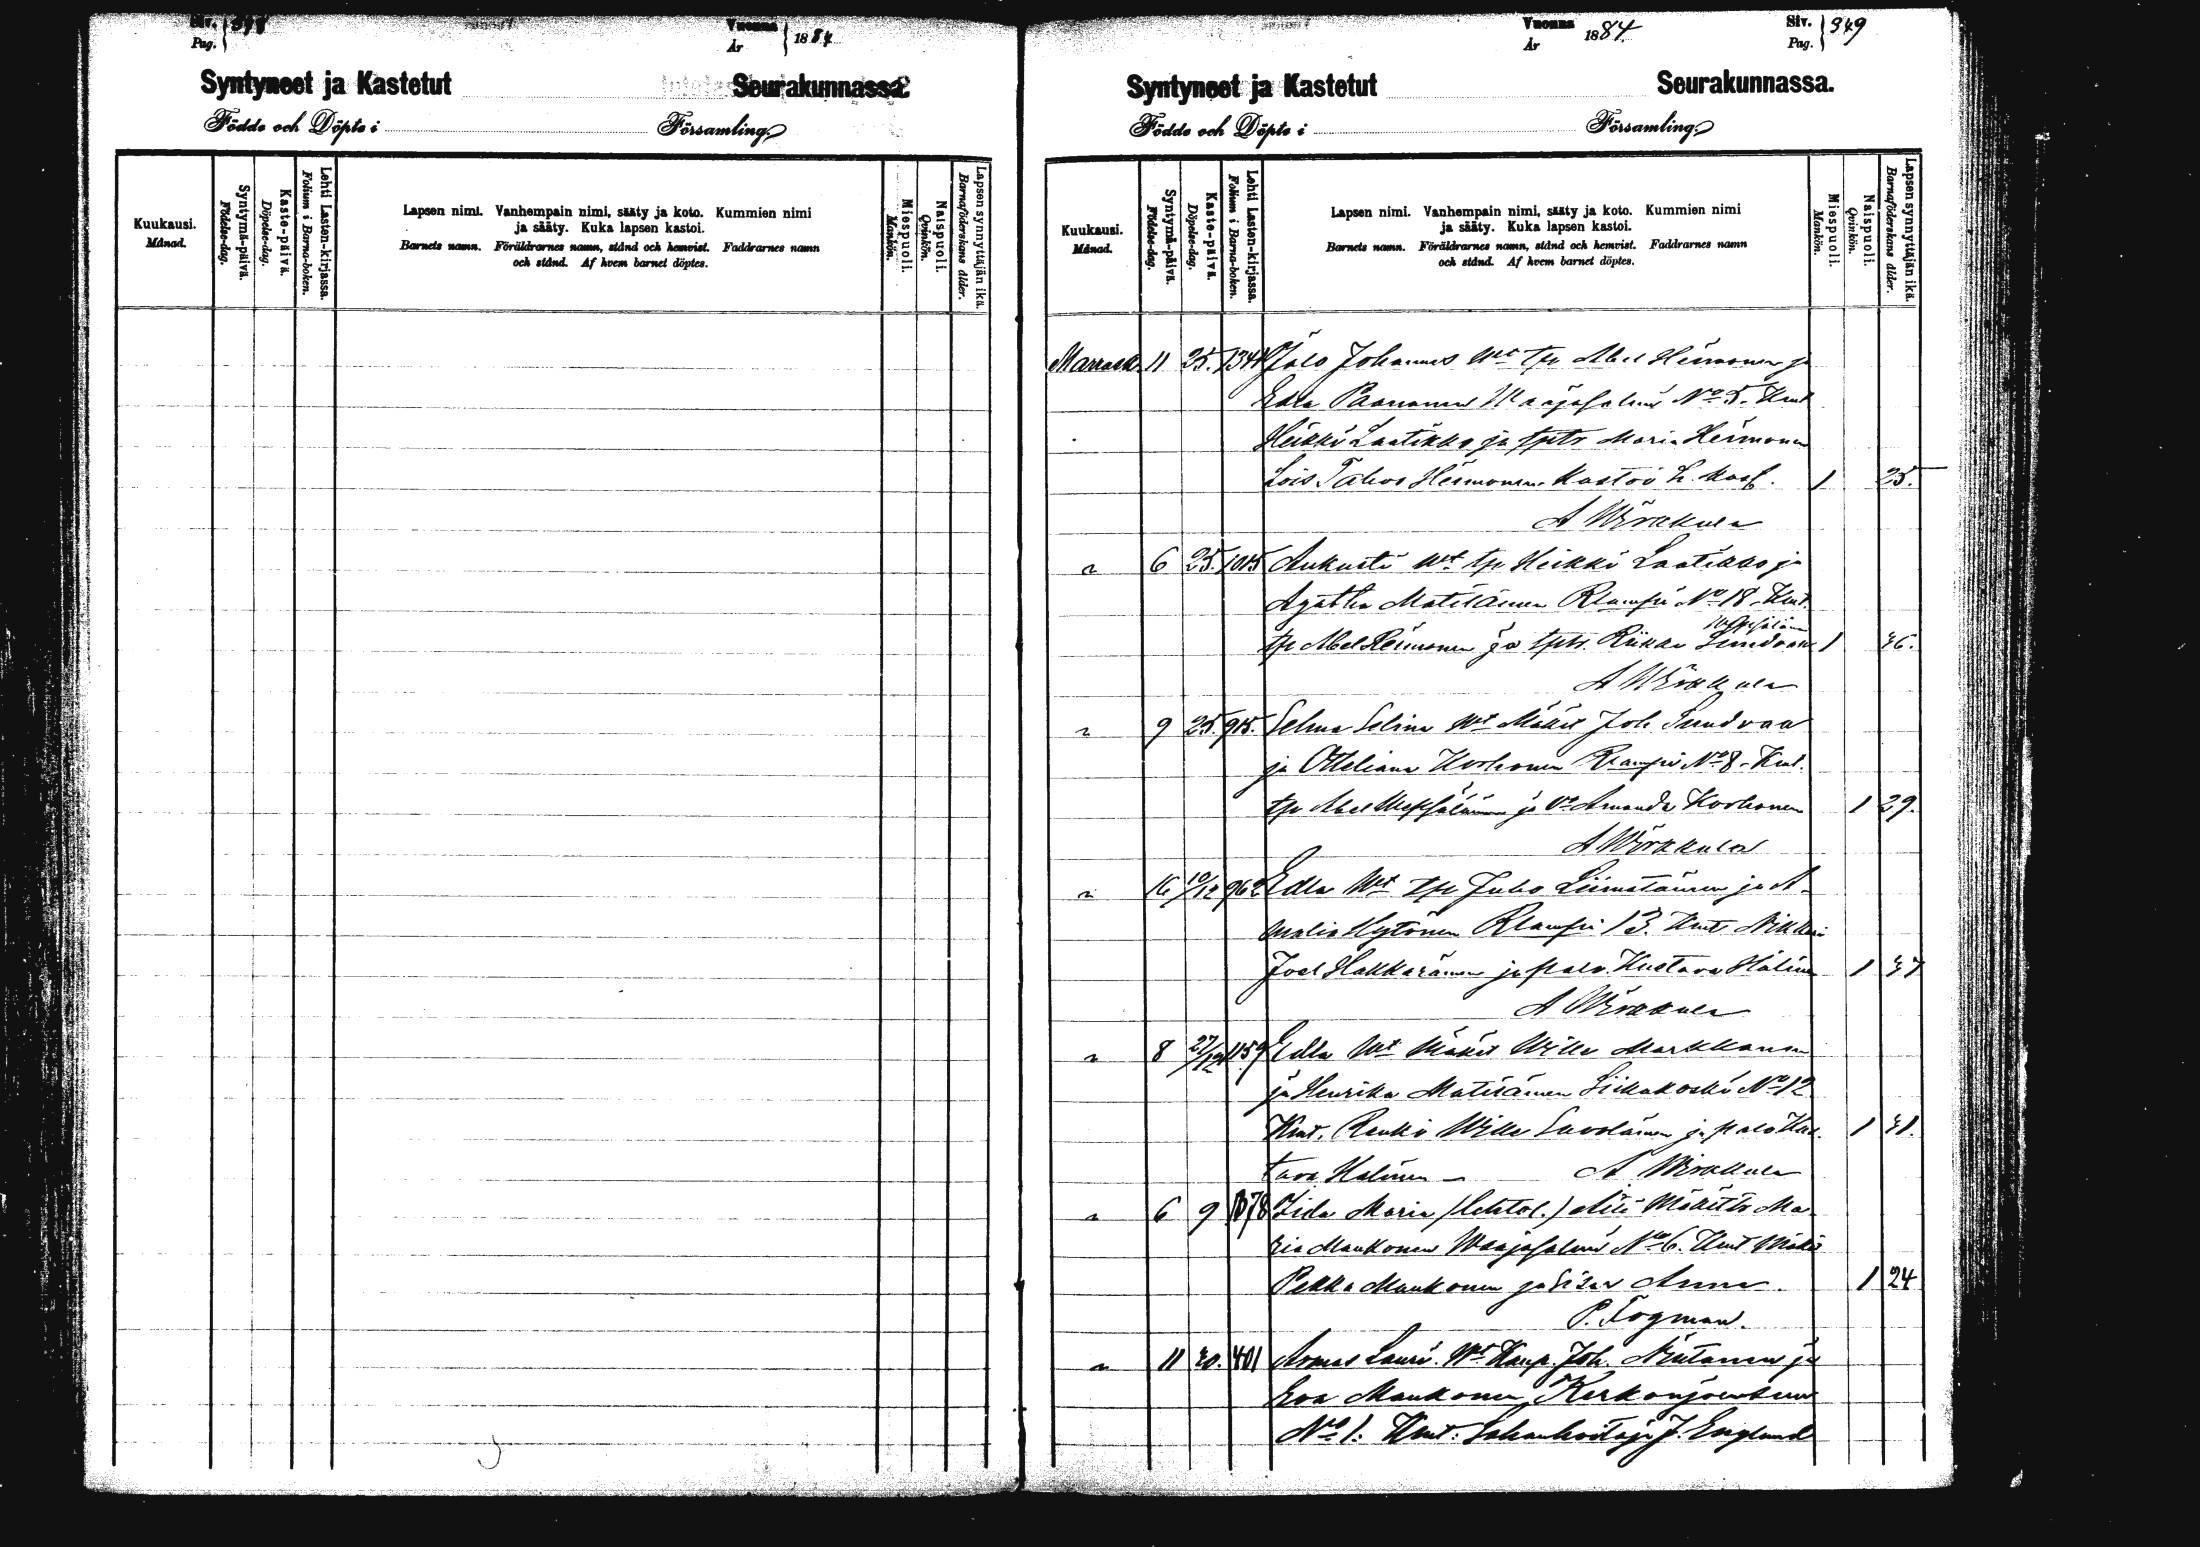 Siv. 348
Pag.
Vuonna 1884
År
Syntyneet ja Kastetut Seurakunnassa.
Födde och Döpte i Församling.
Kuukausi.
Månad.
Syntymä-päivä.
Födelse-dag.
Kaste-päivä.
Döpelse-dag.
Lehti Lasten-kirjassa.
Folium i Barna-boken.
Lapsen nimi. Vanhempain nimi, sääty ja koto. Kummien nimi
ja sääty. Kuka lapsen kastoi.
Barnets namn. Föräldrarnes namn, stånd och hemvist. Faddrarnes namn
och stånd. Af hvem barnet döptes.
Miespuoli.
Mankön.
Naispuoli.
Qvinkön.
Lapsen synnyttäjän ikä.
Barnaföderskans ålder.
Vuonna 1884
År
Siv. 349
Pag.
Syntyneet ja Kastetut Seurakunnassa.
Födde och Döpte i Församling.
Kuukausi.
Månad.
Syntymä-päivä.
Födelse-dag.
Kaste-päivä.
Döpelse-dag.
Lehti Lasten-kirjassa.
Folium i Barna-boken.
Lapsen nimi. Vanhempain nimi, sääty ja koto. Kummien nimi
ja sääty. Kuka lapsen kastoi.
Barnets namn. Föräldrarnes namn, stånd och hemvist. Faddrarnes namn
och stånd. Af hvem barnet döptes.
Miespuoli.
Mankön.
Naispuoli.
Qvinkön.
Lapsen synnyttäjän ikä.
Barnaföderskans ålder.
Marrask. 11 25. 1344 Johannes Wt tp Abel Heimonen ja
Paananen Waajasalmi No 5. Kmt
Heikki Laatikko ja tptr Maria Heimonen
Lois Heimonen Kastoi 1 25.
A Wirkkula
" 6 25. 1015 Aukusti Wt tp Heikki Laatikko ja
Agatha Matilainen Rlampi No 18. Kmt.
tp Abel Heimonen ja tptr. Riikka Sundvall 1 46.
A Wirkkula
" 9 25. 915. Selma Selina Wt Mäkit Joh. Sundvall
ja Otteliana Korhonen Rlampi No 8. Kmt.
tp Abel ja Amanda Korhonen 1 29.
A Wirkkula
" 16 10/12 962 Edla Wt tp Juho Liimatainen ja A-
malia Hytönen Rlampi 13. Kmt Nikkari
Joel Hakkarainen ja palv. Kustava Halinen 1 47
A Wirkkula
" 8 27/12 1159 Edla Wt Mäkit Wille Markkanen
ja Henrika Matilainen Siikakoski No 12
Kmt. Renki Wille Savolainen ja palv Kus-
tava Halinen – A Wirkkula 1 41.
" 6 9 1078 Iida Maria (lehtol.) äiti Mäkittr Ma-
ria Maukonen Waajasalmi No 6. Kmt Mäkit
Pekka Maukonen ja sisar Anna. 1 24
P. Fogman.
" 11 30. 401 Armas Lauri. Wt Kaup. Joh. Niutanen ja
Eva Maukonen, Kerkonjoensuu
No 1. Kmt: Sahanhoitaja J. Englund